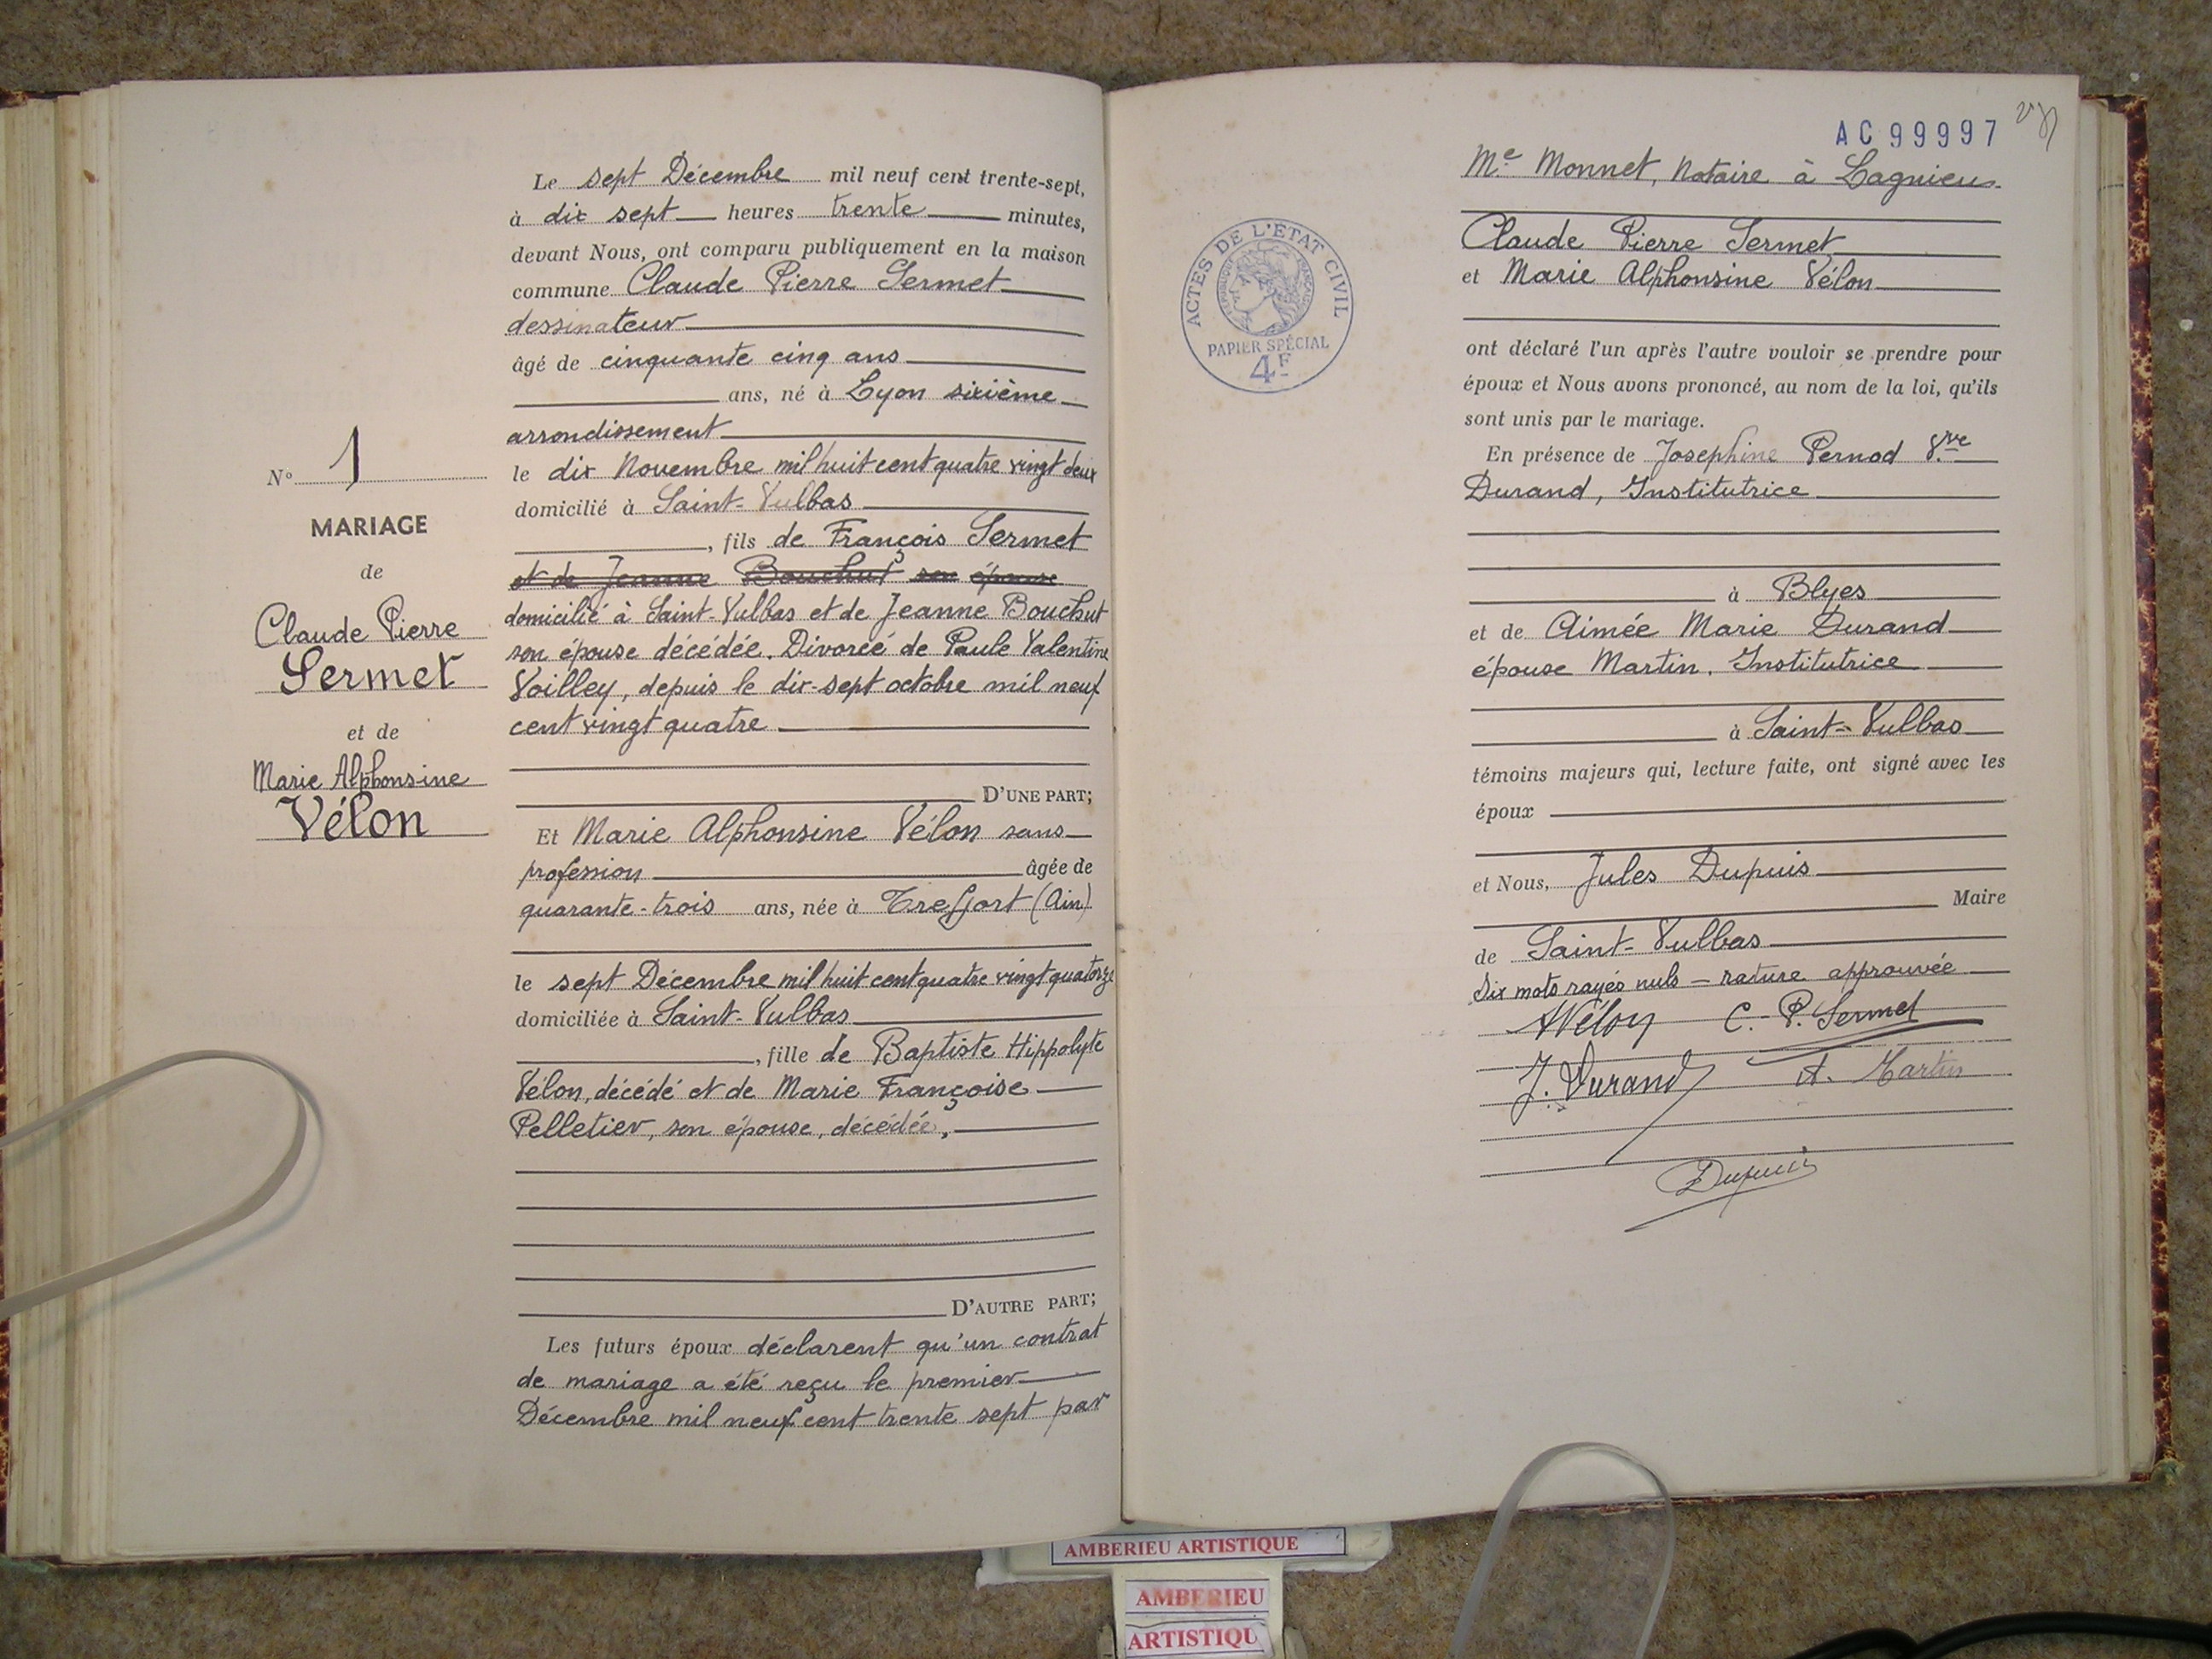 N° 1
MARIAGE
de
Claude Pierre
Sermet
et de
Marie Alphonsine
Vélon
Le sept Décembre mil neuf cent trente-sept,
à dix sept heures trente minutes,
devant Nous, ont comparu publiquement en la maison
commune Claude Pierre Sermet
dessinateur
âgé de cinquante cinq ans
ans, né à Lyon sixième
arrondissement
le dix Novembre mil huit cent quatre vingt deux
domicilié à Saint-Vulbas
, fils de François Sermet
et de Jeanne Bouchut son épouse
domicilié à Saint-Vulbas et de Jeanne Bouchut
son épouse décédée. Divorcé de Paule Valentine
Voilley, depuis le dix-sept octobre mil neuf
cent vingt quatre
D'UNE PART;
Et Marie Alphonsine Vélon sans
profession âgée de
quarante-trois ans, née à Treffort (Ain)
le sept Décembre mil huit cent quatre vingt quatorze
domiciliée à Saint-Vulbas
, fille de Baptiste Hippolyte
Vélon, décédé et de Marie Françoise
Pelletier, son épouse, décédée,
D'AUTRE PART;
Les futurs époux déclarent qu'un contrat
de mariage a été reçu le premier
Décembre mil neuf cent trente sept par
AC 99997
Me Monnet, Notaire à Lagnieu
Claude Pierre Sermet
et Marie Alphonsine Vélon
ACTES DE L'ÉTAT CIVIL
RÉPUBLIQUE FRANÇAISE
PAPIER SPÉCIAL
4F
ont déclaré l'un après l'autre vouloir se prendre pour
époux et Nous avons prononcé, au nom de la loi, qu'ils
sont unis par le mariage.
En présence de Josephine Pernod Vve
Durand, Institutrice
à Blyes
et de Aimée Marie Durand
épouse Martin, Institutrice
à Saint-Vulbas
témoins majeurs qui, lecture faite, ont signé avec les
époux
et Nous, Jules Dupuis
Maire
de Saint-Vulbas
Dix mots rayés nuls - rature approuvée
AVélon C.-P. Sermet
J. Durand A. Martin
Dupuis
AMBERIEU ARTISTIQUE
AMBERIEU
ARTISTIQU